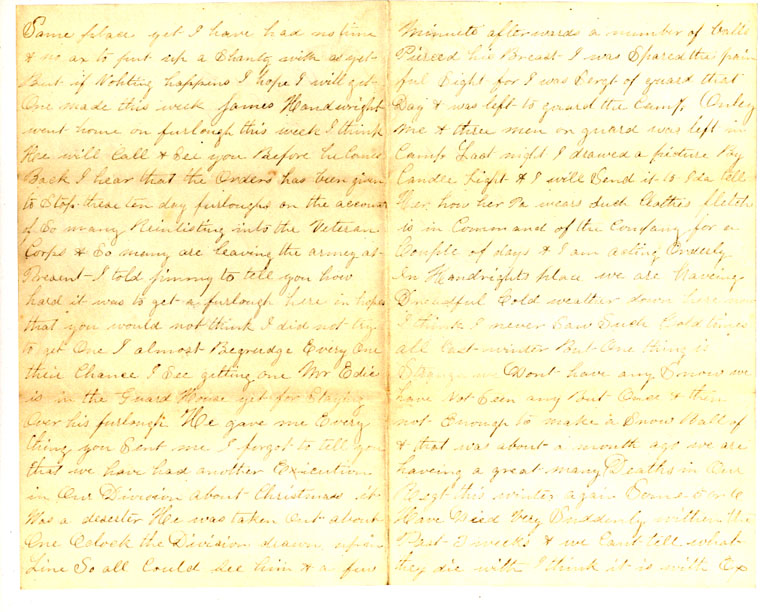 Same place yet I have had no time
& no ax to put up a Shanty with as yet
But if Nothing happens I hope I will get
One made this week James Handwright
went home on furlough this week I think
He will Call & See you Before he Comes
Back I hear that the Orders has been given
to Stop these ten day furloughs on the account
of So many Reinlisting into the Veteran
Corps & So many are leaving the army at
Present I told jimmy to tell you how
hard it was to get a furlough here in hopes
that you would not think I did not try
to get One I almost Begrudge Every One
their Chance I See getting one Mr Edie
is in the Guard House yet for Staying
Over his furlough He gave me Every
thing you Sent me I forgot to tell you
that we have had another Execution
in Our Division about Christmass it
Was a deserter He was taken Out about
One Oclock the Division drawn up in
Line So all Could See him & a few
Minuets afterwards a number of balls
Pierced his Breast I was Spared the pain
ful Sight for I was Sergt of guard that
Day & was left to guard the Camp (Onley
Me & three men on guard was left in
Camp Last night I drawed a picture By
Candle Light & I will Send it to Ida tell
Her how her Pa wears Such Clothes
is in Command of the Company for a
Couple of days & I am acting Orderly
In Handrights place we are haveing
Dreadful Cold weather down here now
I think I never Saw Such Cold times
all Last winter But One thing is
Wont have any Snow we
have Not Seen any But Once & then
not Enough to make a Snow Ball of
& that was about a month ago we are
haveing a great many Deaths in Our
Regt this winter again Some 5 or 6
Have Died Very Suddenly within the
Last 3 weeks & we Cant tell what
they die with I think it is with Ex